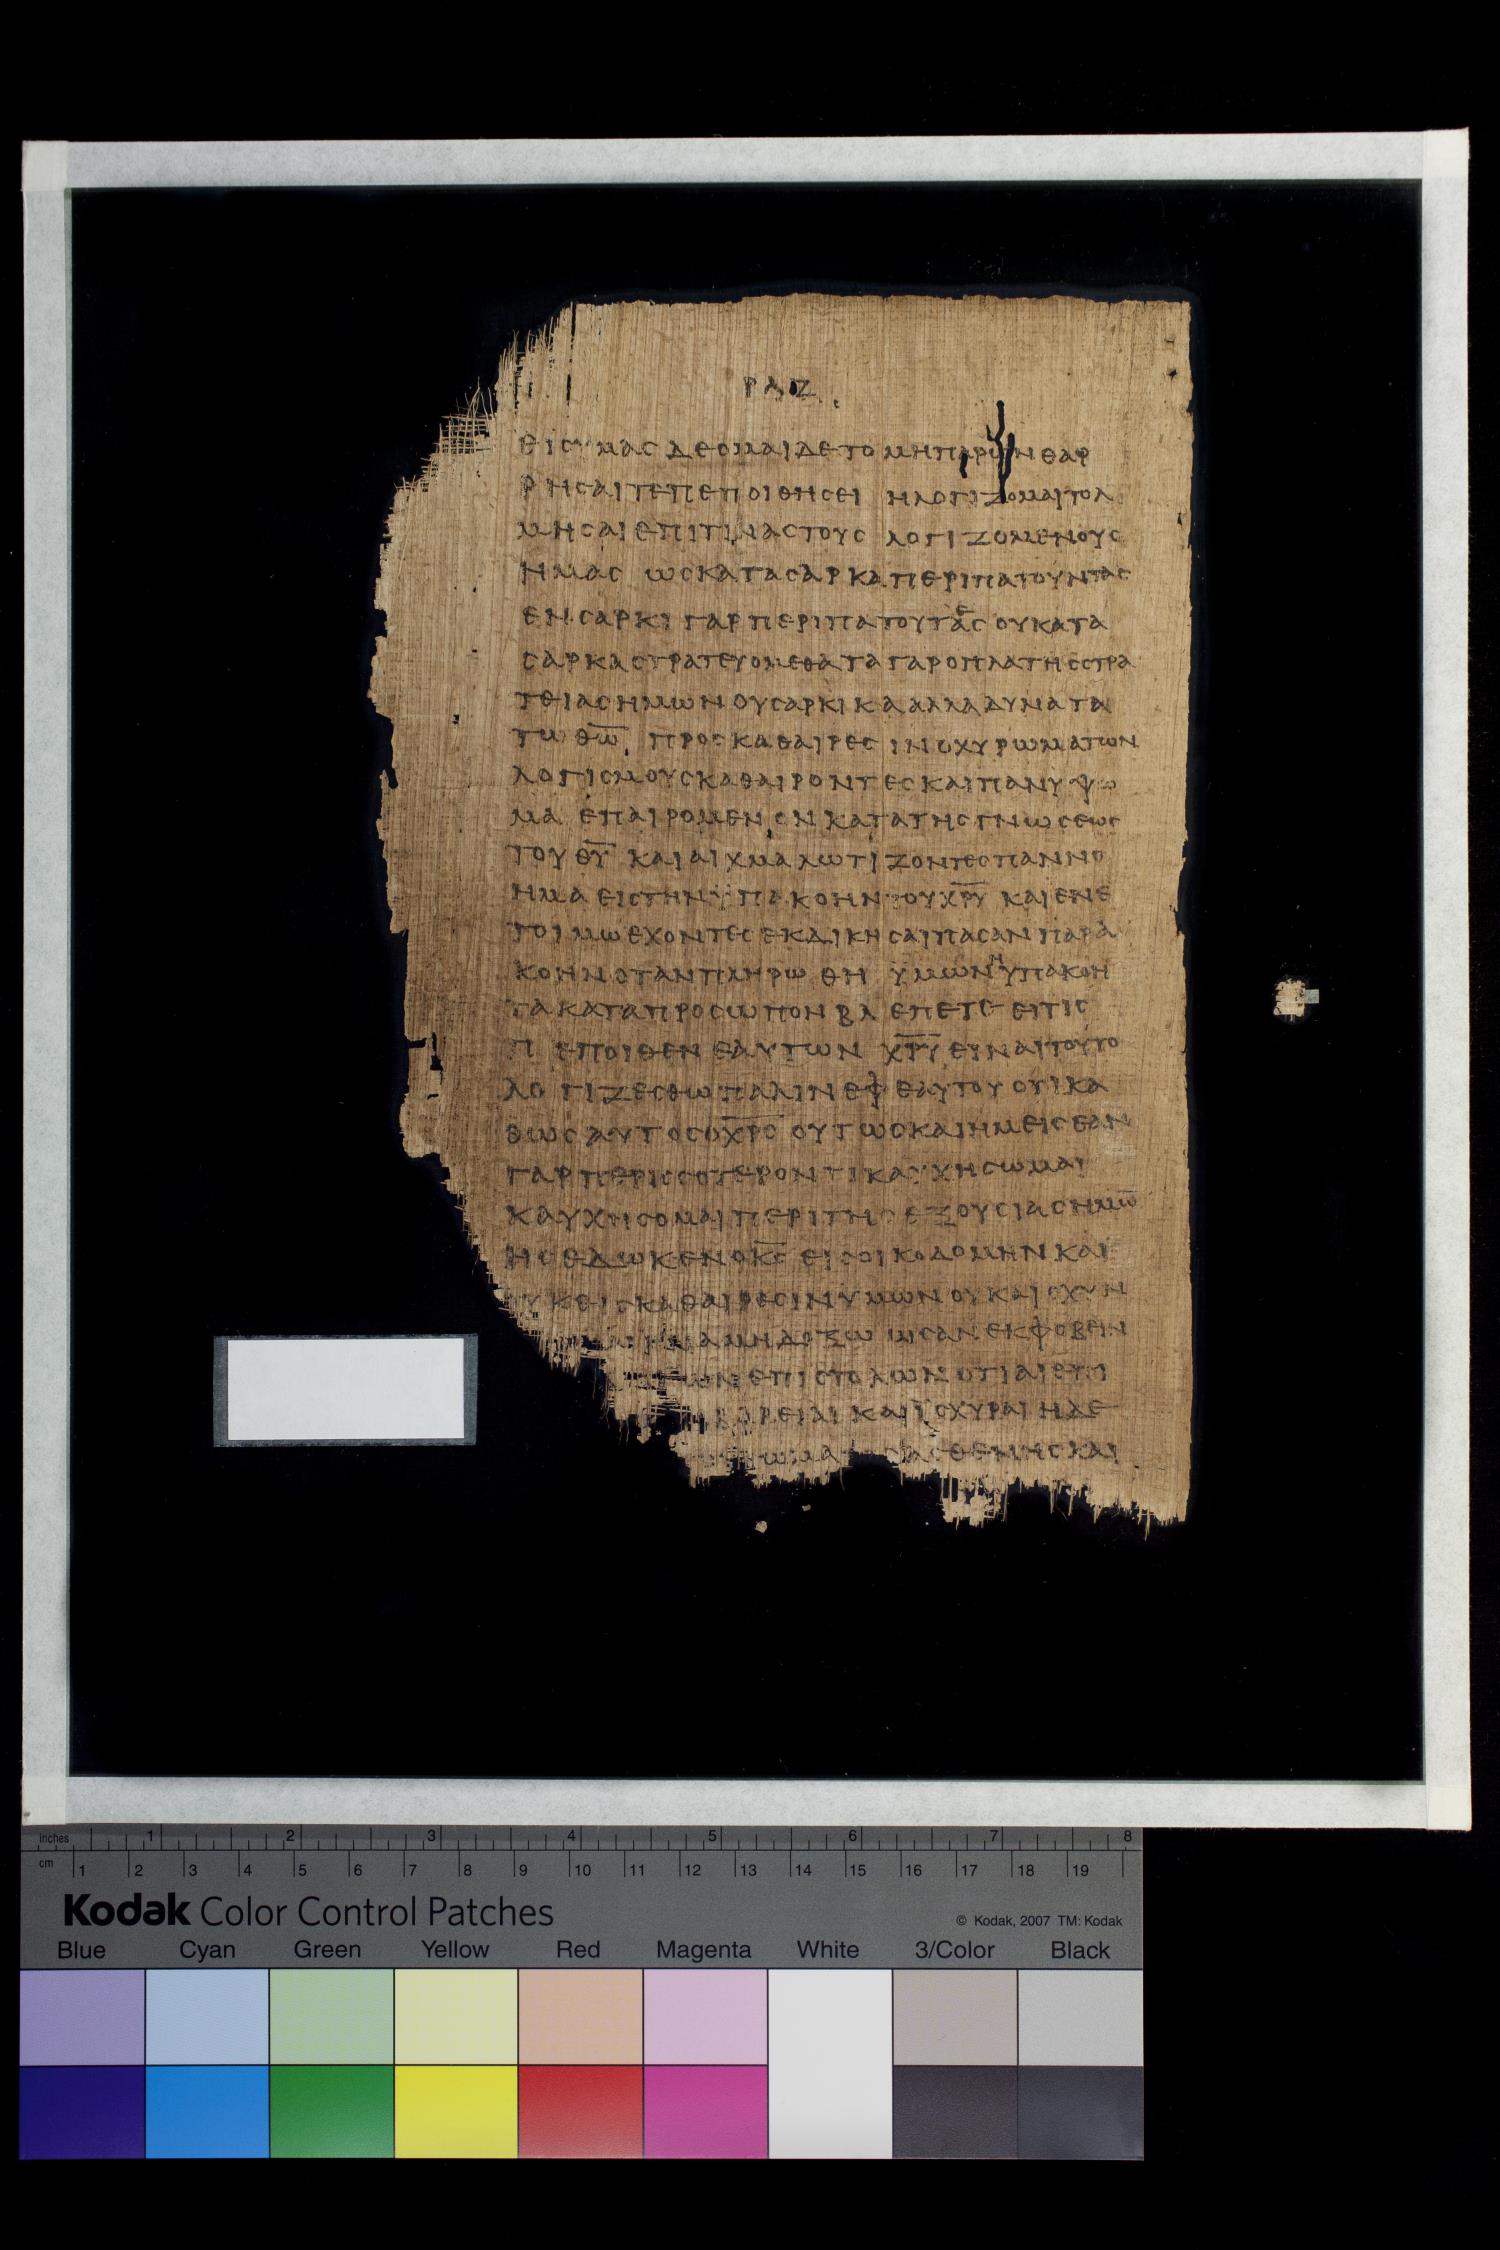 ΡΛΖ
ΕΙΣ ΥΜΑΣ ΔΕΟΜΑΙ ΔΕ ΤΟ ΜΗ ΠΑΡΩΝ ΘΑΡ
ΡΗΣΑΙ ΤΕ ΠΕΠΟΙΘΗΣΕΙ Η ΛΟΓΙΖΟΜΑΙ ΤΟΛ
ΜΗΣΑΙ ΕΠΙ ΤΙΝΑΣ ΤΟΥΣ ΛΟΓΙΖΟΜΕΝΟΥΣ
ΗΜΑΣ ΩΣ ΚΑΤΑ ΣΑΡΚΑ ΠΕΡΙΠΑΤΟΥΝΤΑΣ
ΕΝ ΣΑΡΚΙ ΓΑΡ ΠΕΡΙΠΑΤΟΥΤΑΕΣ ΟΥ ΚΑΤΑ
ΣΑΡΚΑ ΣΤΡΑΤΕΥΟΜΕΘΑ ΤΑ ΓΑΡ ΟΠΛΑ ΤΗΣ ΣΤΡΑ
ΤΕΙΑΣ ΗΜΩΝ ΟΥ ΣΑΡΚΙΚΑ ΑΛΛΑ ΔΥΝΑΤΑ
ΤΩ ΘΩ ΠΡΟΣ ΚΑΘΑΙΡΕΣΙΝ ΟΧΥΡΩΜΑΤΩΝ
ΛΟΓΙΣΜΟΥΣ ΚΑΘΑΙΡΟΝΤΕΣ ΚΑΙ ΠΑΝ ΥΨΩ
ΜΑ ΕΠΑΙΡΟΜΕΝΟΝ ΚΑΤΑ ΤΗΣ ΓΝΩΣΕΩΣ
ΤΟΥ ΘΥ ΚΑΙ ΑΙΧΜΑΛΩΤΙΖΟΝΤΕΣ ΠΑΝ ΝΟ
ΗΜΑ ΕΙΣ ΤΗΝ ΫΠΑΚΟΗΝ ΤΟΥ ΧΡΥ ΚΑΙ ΕΝ Ε
ΤΟΙΜΩ ΕΧΟΝΤΕΣ ΕΚΔΙΚΗΣΑΙ ΠΑΣΑΝ ΠΑΡΑ
ΚΟΗΝ ΟΤΑΝ ΠΛΗΡΩΘΗ ΫΜΩΝ Η ΥΠΑΚΟΗ
ΤΑ ΚΑΤΑ ΠΡΟΣΩΠΟΝ ΒΛΕΠΕΤΕ ΕΙ ΤΙΣ
ΠΕΠΟΙΘΕΝ ΕΑΥΤΩΝ ΧΡΥ ΕΙΝΑΙ ΤΟΥΤΟ
ΛΟΓΙΖΕΣΘΩ ΠΑΛΙΝ ΕΦ ΕΑΥΤΟΥ ΟΤΙ ΚΑ
ΘΩΣ ΑΥΤΟΣ Ο ΧΡΣ ΟΥΤΩΣ ΚΑΙ ΗΜΕΙΣ ΕΑΝ
ΓΑΡ ΠΕΡΙΣΣΟΤΕΡΟΝ ΤΙ ΚΑΥΧΗΣΩΜΑΙ
ΚΑΥΧΗΣΟΜΑΙ ΠΕΡΙ ΤΗΣ ΕΞΟΥΣΙΑΣ ΗΜΩ̅
ΗΣ ΕΔΩΚΕΝ Ο ΚΣ ΕΙΣ ΟΙΚΟΔΟΜΗΝ ΚΑΙ
ΥΚ ΕΙΣ ΚΑΘΑΙΡΕΣΙΝ ΥΜΩΝ ΟΥΚ ΑΙΣΧΥΝ
ΙΝΑ ΜΗ ΔΟΞΩ ΩΣ ΑΝ ΕΚΦΟΒΕΙΝ
ΤΩΝ ΕΠΙΣΤΟΛΩΝ ΟΤΙ ΑΙ ΕΠΙ
ΒΑΡΕΙΑΙ ΚΑΙ ΪΣΧΥΡΑΙ Η ΔΕ
ΣΩΜΑ ΑΣΘΕΝΗΣ ΚΑΙ
Inches
1 2 3 4 5 6 7 8
cm
1 2 3 4 5 6 7 8 9 10 11 12 13 14 15 16 17 18 19
Kodak Color Control Patches
© Kodak, 2007 TM: Kodak
Blue Cyan Green Yellow Red Magenta White 3/Color Black